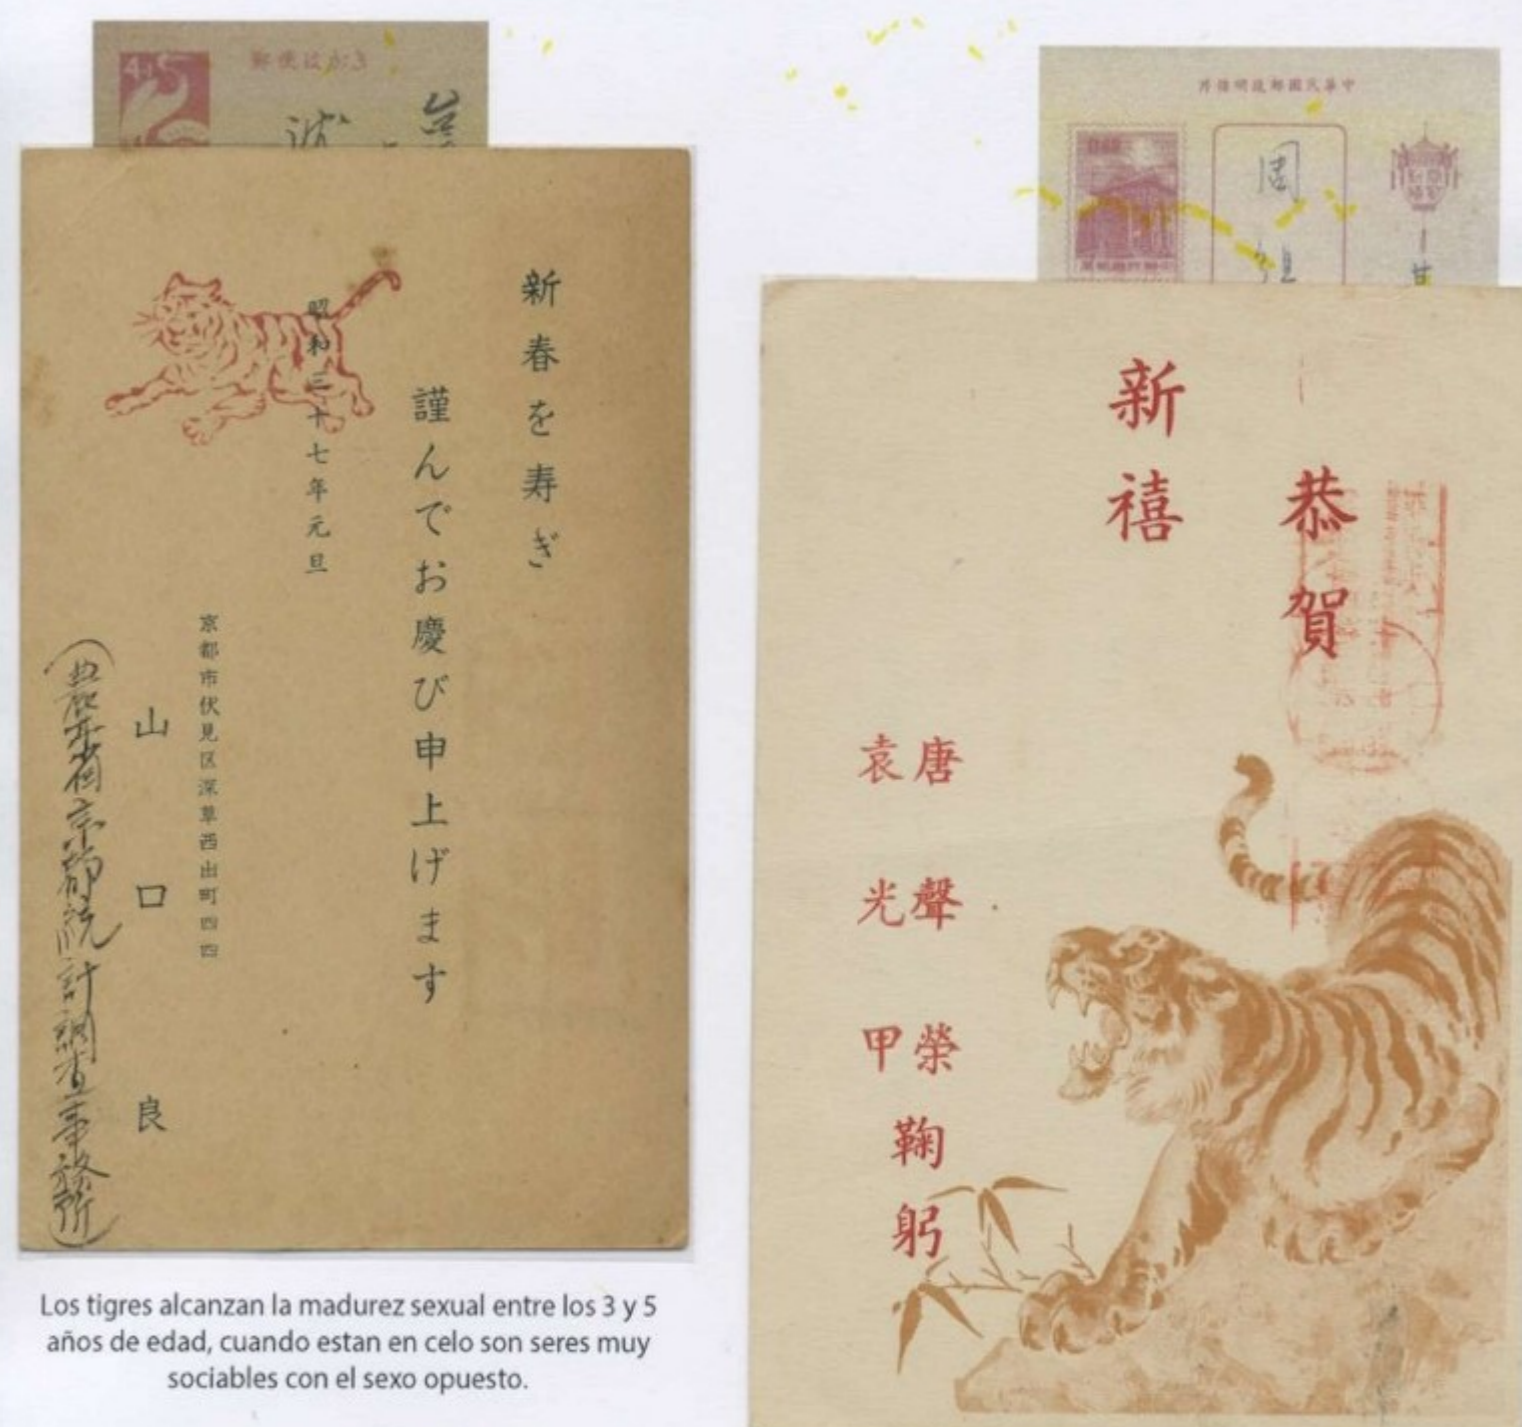 郵便はがき
新春を寿ぎ
謹んでお慶び申上げます
昭和三十七年元旦
京都市伏見区深草西出町四四
山口良
京都統計調査事務所)
Los tigres alcanzan la madurez sexual entre los 3 y 5
años de edad, cuando estan en celo son seres muy
sociables con el sexo opuesto.
片信明政郵國民華中
周
恭賀
新禧
唐聲榮
袁光甲
鞠躬